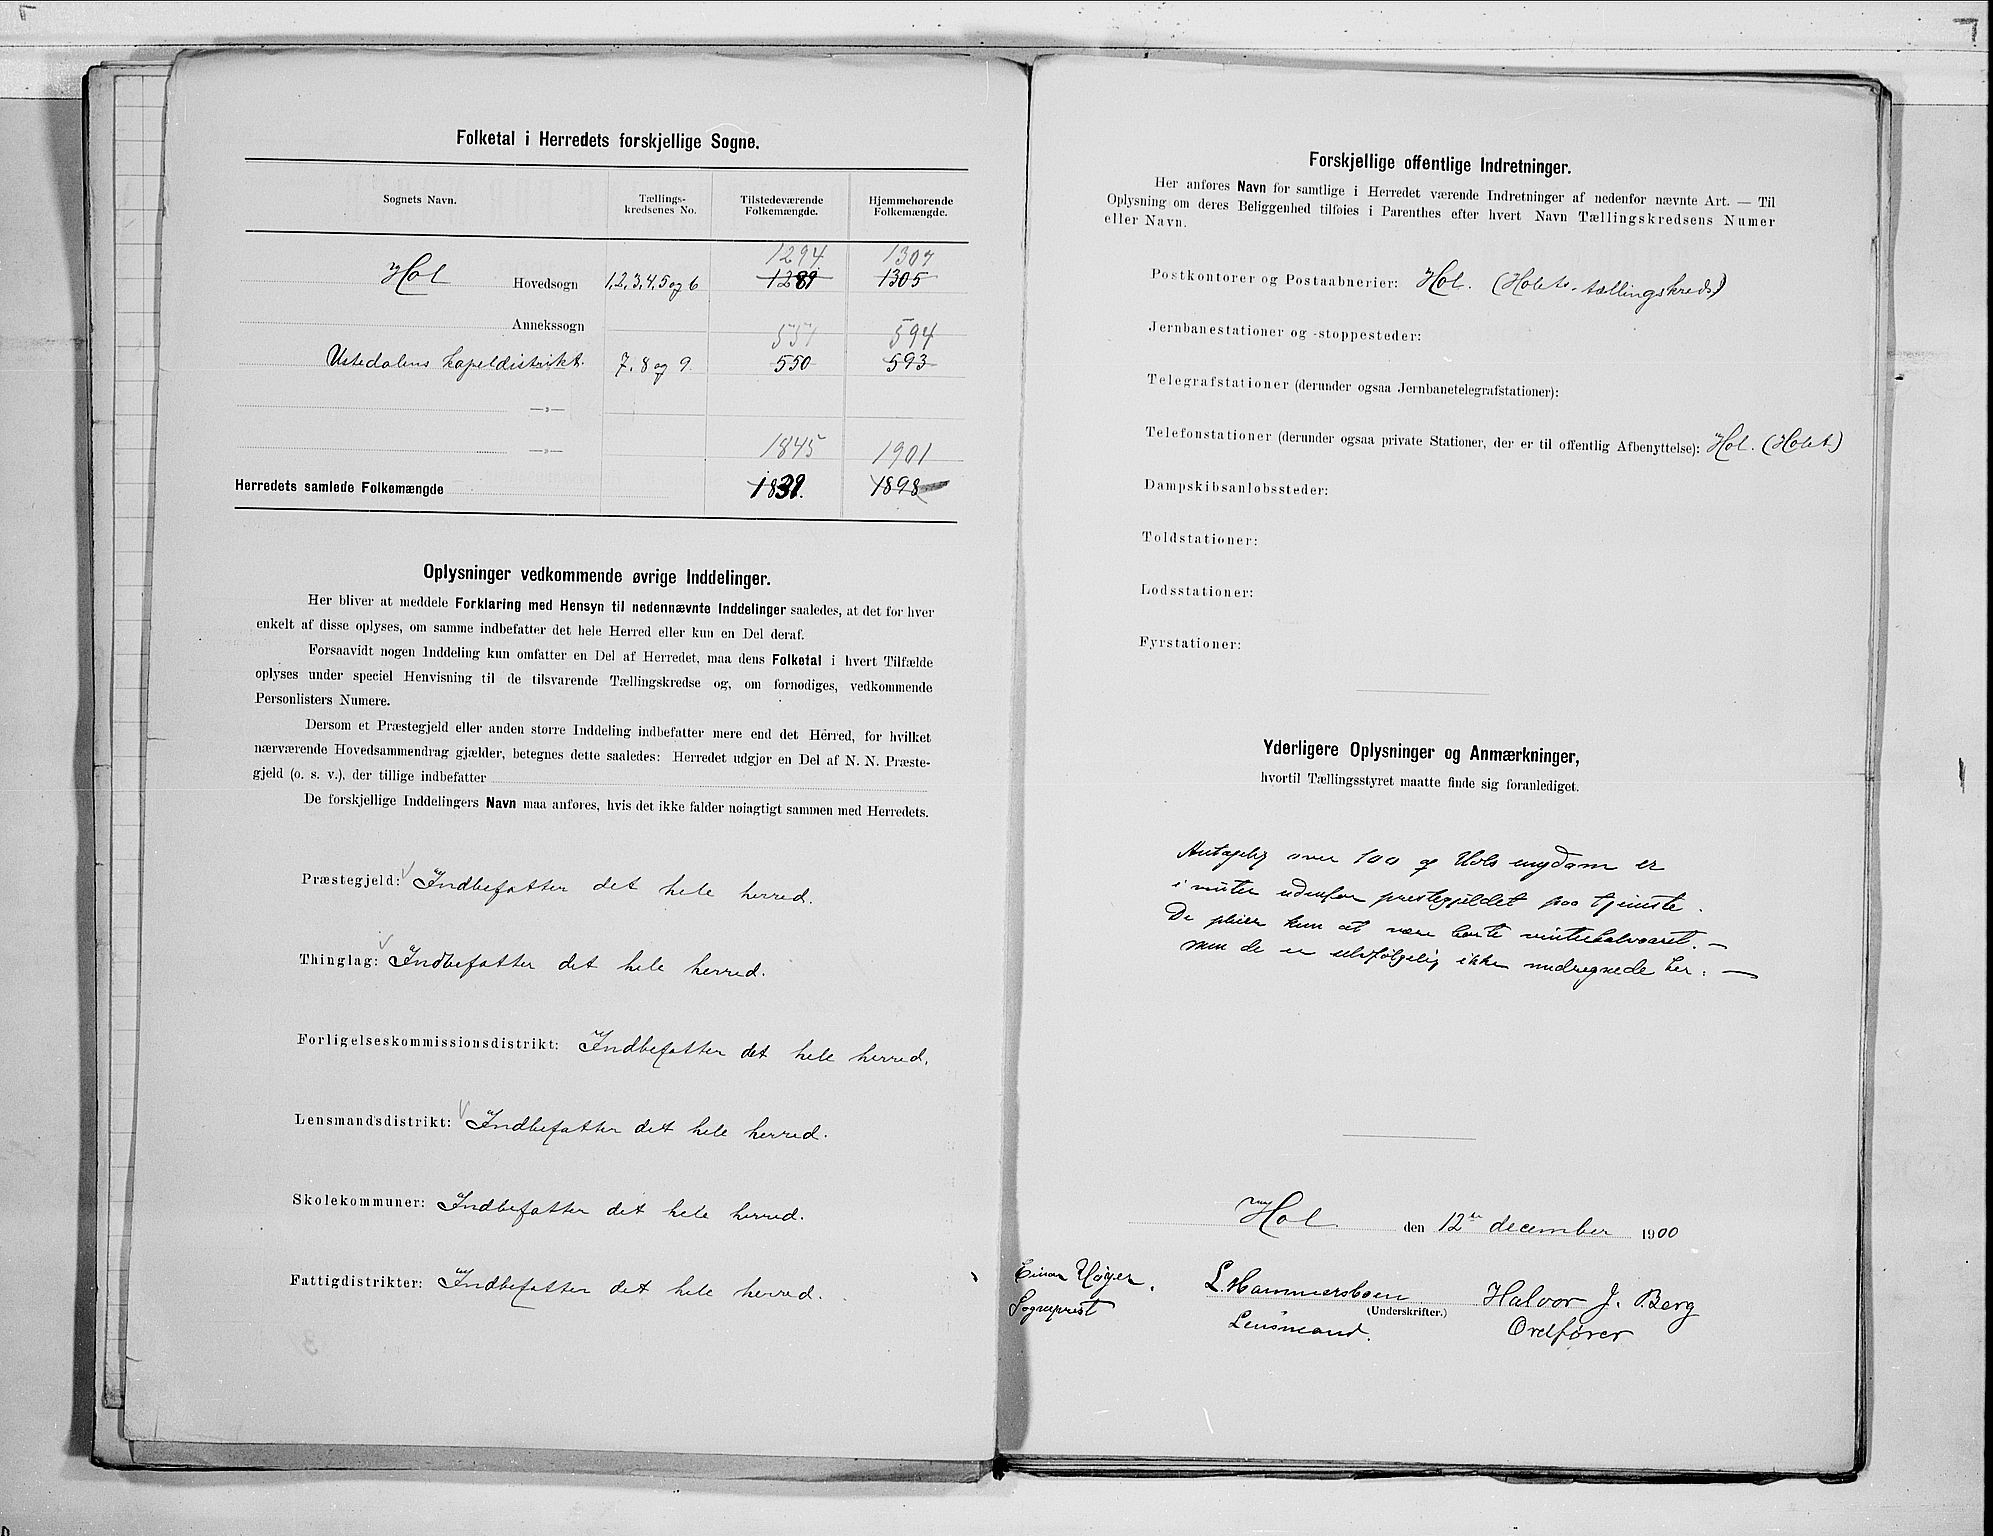 Folketal i Herredets forskjellige Sogne.
Sognets Navn. Tællings- kredsenes No. Tilstedeværende Folkemængde. Hjemmehørende Folkemængde.
1294 1307
Hol Hovedsogn 1,2,3,4,5 og 6 1289 1305
Annekssogn
551 594
Ustedalens kapeldistrikt. 7, 8 og 9. 550 593
—„—
1845 1901
—„—
Herredets samlede Folkemængde 1839. 1898
Oplysninger vedkommende øvrige Inddelinger.
Her bliver at meddele Forklaring med Hensyn til nedennævnte Inddelinger saaledes, at det for hver
enkelt af disse oplyses, om samme indbefatter det hele Herred eller kun en Del deraf.
Forsaavidt nogen Inddeling kun omfatter en Del af Herredet, maa dens Folketal i hvert Tilfælde
oplyses under speciel Henvisning til de tilsvarende Tællingskredse og, om fornødiges, vedkommende
Personlisters Numere.
Dersom et Præstegjeld eller anden større Inddeling indbefatter mere end det Herred, for hvilket
nærværende Hovedsammendrag gjælder, betegnes dette saaledes: Herredet udgjør en Del af N. N. Præste-
gjeld (o. s. v.), der tillige indbefatter
De forskjellige Inddelingers Navn maa anføres, hvis det ikke falder nøiagtigt sammen med Herredets.
Præstegjeld: Indbefatter det hele herred.
Thinglag: Indbefatter det hele herred.
Forligelseskommissionsdistrikt: Indbefatter det hele herred.
Lensmandsdistrikt: Indbefatter det hele herred.
Skolekommuner: Indbefatter det hele herred.
Fattigdistrikter: Indbefatter det hele herred.
Forskjellige offentlige Indretninger.
Her anføres Navn for samtlige i Herredet værende Indretninger af nedenfor nævnte Art. — Til
Oplysning om deres Beliggenhed tilføies i Parenthes efter hvert Navn Tællingskredsens Numer
eller Navn.
Postkontorer og Postaabnerier: Hol. (Holets tællingskreds)
Jernbanestationer og -stoppesteder:
Telegrafstationer (derunder ogsaa Jernbanetelegrafstationer):
Telefonstationer (derunder ogsaa private Stationer, der er til offentlig Afbenyttelse): Hol. (Holet)
Dampskibsanløbssteder:
Toldstationer:
Lodsstationer:
Fyrstationer:
Yderligere Oplysninger og Anmærkninger,
hvortil Tællingsstyret maatte finde sig foranlediget.
Antagelig over 100 af Hols ungdom er
i vinter udenfor prestegjeldet paa tjeneste.
De pleier kun at være borte vinterhalvaaret. —
men de er selvfølgelig ikke medregnede her. —
Hol den 12te december 1900
Einar Høyer. L. Hammersboen Halvor J. Berg
(Underskrifter.)
Sogneprest Lensmand. Ordfører